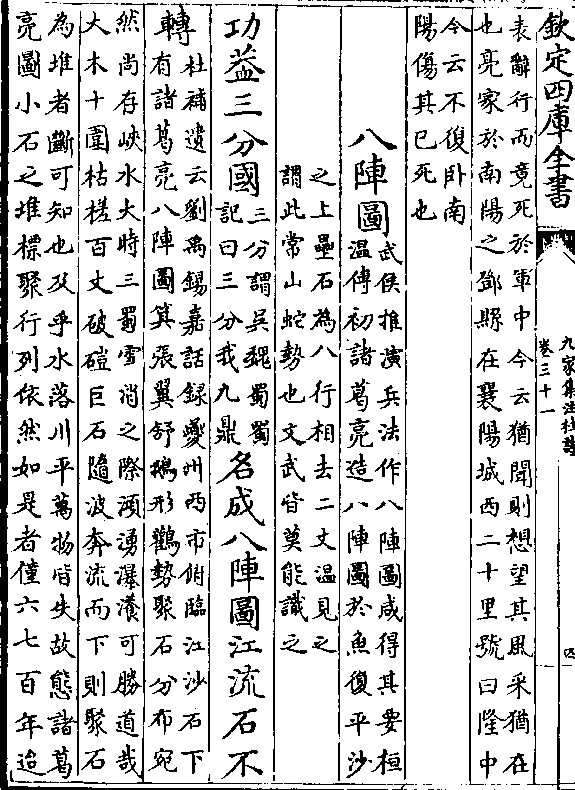 欽定四庫全書
九家集注杜詩
卷三十一
四
表辭行而竟死於軍中今云猶聞則想望其風采猶在
也亮家於南陽之鄧縣在襄陽城西二十里號曰隆中
今云不復卧南
陽傷其已死也
八陣圖
武侯推演兵法作八陣圖咸得其要桓
温傳初諸葛亮造八陣圖於魚復平沙
之上壘石為八行相去二丈温見之
謂此常山蛇勢也文武皆莫能識之
功葢三分國
三分謂吳魏蜀蜀
記曰三分我九鼎
名成八陣圖江流石不
轉
杜補遺云劉禹錫嘉話録夔州西市俯臨江沙石下
有諸葛亮八陣圖箕張翼舒鵝形鸛勢聚石分布宛
然尚存峽水大時三蜀雪消之際澒湧瀑瀁可勝道哉
大木十圍枯槎百丈破磑巨石隨波奔流而下則聚石
為堆者斷可知也及乎水落川平萬物皆失故態諸葛
亮圖小石之堆標聚行列依然如是者僅六七百年迨